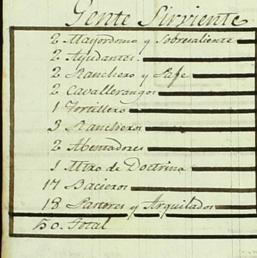 Gente Sirviente
2 Mayordomo y Sobresaliente
2 Ayudantes
2 Ranchero y Pafe
2 Cavallerangos
1 Fortillero
3 Rancheros
2 Abentadores
1 Mtro de Doctrina
17 Bacieros
18 Pastores y Arquilados
50. Total